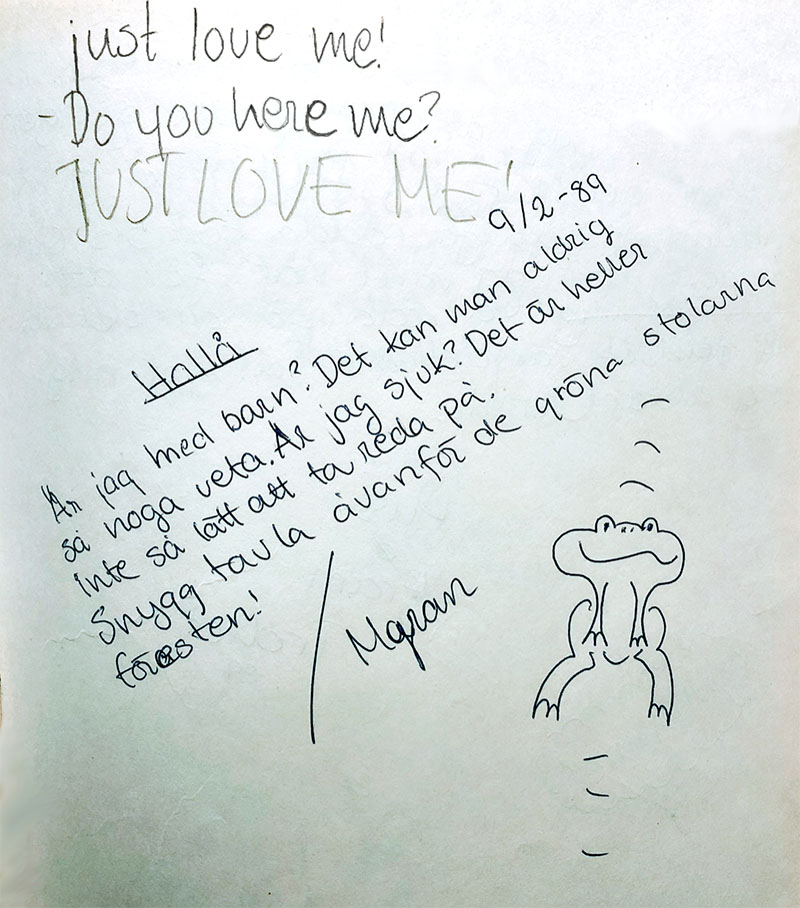 just love me!
- Do you here me?
JUST LOVE ME!
9/2-89
Hallå
Är jag med barn? Det kan man aldrig
så noga veta. Är jag sjuk? Det är heller
inte så lätt att ta reda på.
Snygg tavla åvanför de gröna stolarna
föresten!
/ Mgran